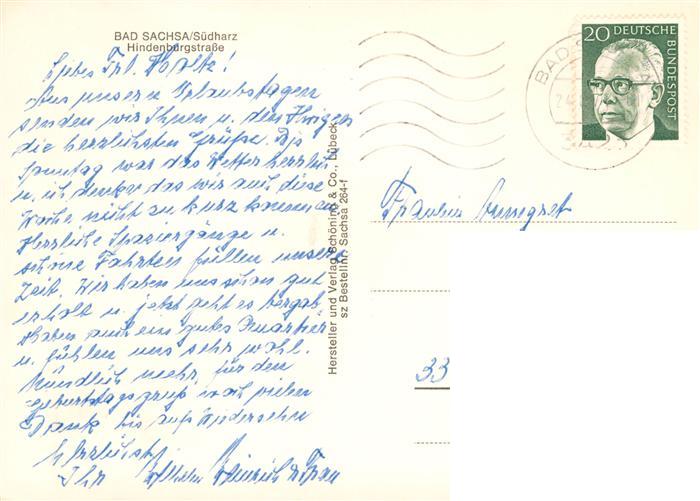 BAD SACHSA/Südharz
Hindenburgstraße
Liebes Frl. !
Aus unseren Urlaubstagen
senden wir Ihnen u. den Ihrigen
die herzlichsten Grüße. Bis
Sonntag war das Wetter herrlich
u. ich denke das wir auch diese
Woche nicht zu kurz kommen.
Herrliche Spaziergänge u.
schöne Fahrten füllen unsere
Zeit. Wir haben uns schon gut
erholt u. jetzt geht es bergab.
Haben auch ein gutes Quartier
u. fühlen uns sehr wohl.
Mündlich mehr, für den
Geburtstagsgruß noch vielen
Dank bis aufs Wiedersehen
herzlichst
Ihr Wilhelm Heinrich u. Frau
Hersteller und Verlag Schöning & Co., Lübeck
sz Bestellnr. Sachsa 264-f
20 DEUTSCHE
BUNDESPOST
BAD
Fräulein Annegret
33